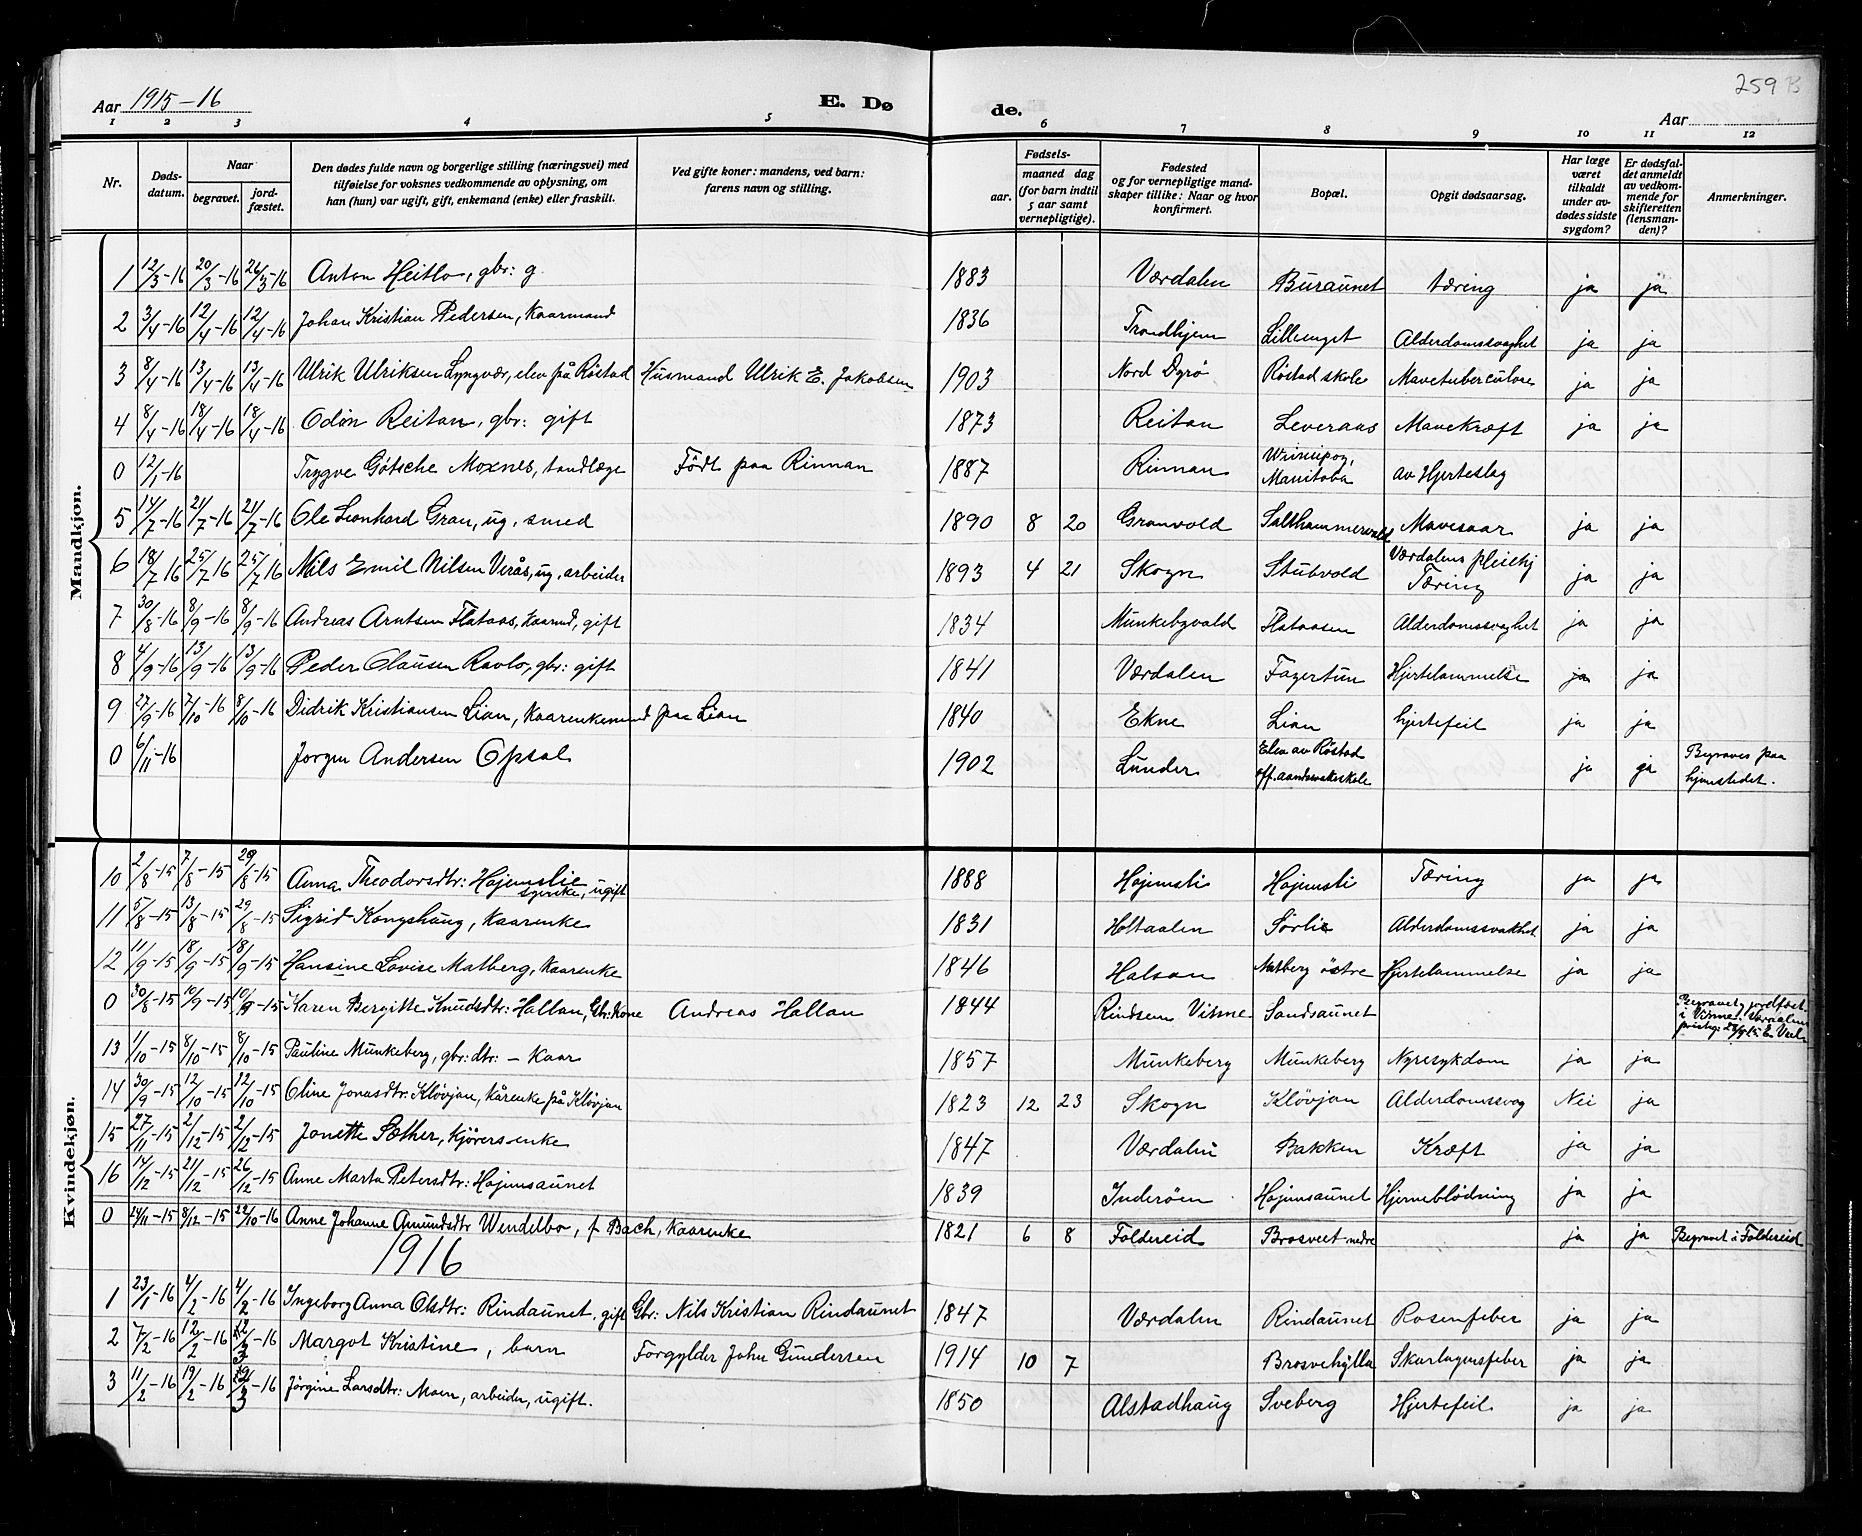 259 B
Aar 1915-16 E. Døde. Aar
1 2 3 4 5 6 7 8 9 10 11 12
Nr.
Døds-datum.
Naar
begravet. jord-fæstet.
Den dødes fulde navn og borgerlige stilling (næringsvei) med
tilføielse for voksnes vedkommende av oplysning, om
han (hun) var ugift, gift, enkemand (enke) eller fraskilt.
Ved gifte koner: mandens, ved barn:
farens navn og stilling.
Fødsels-
aar. maaned dag
(for barn indtil
5 aar samt
vernepligtige).
Fødested
og for vernepligtige mand-
skaper tillike: Naar og hvor
konfirmert.
Bopæl.
Opgit dødsaarsag.
Har læge
været
tilkaldt
under av-
dødes sidste
sygdom?
Er dødsfal-
det anmeldt
av vedkom-
mende for
skifteretten
(lensman-
den)?
Anmerkninger.
Mandkjøn.
1 12/3-16 20/3-16 26/3-16 Anton Heitlo, gbr: g. 1883 Værdalen Buraunet tæring ja ja
2 3/4-16 12/4-16 12/4-16 Johan Kristian Pedersen, Kaarmand 1836 Trondhjem Lilleenget Alderdomssvaghet ja ja
3 8/4-16 13/4-16 13/4-16 Ulrik Ulriksen Lyngvær, elev på Röstad Husmand Ulrik E. Jakobsen 1903 Nord Dyrö Röstad skole Mavetuberculose ja ja
4 8/4-16 18/4-16 18/4-16 Odin Reitan, gbr: gift 1873 Reitan Leveraas Mavekræft ja ja
0 12/1-16 Trygve Götsche Moxnes, tandlæge Födt paa Rinnan 1887 Rinnan Winnipog, Manitoba av Hjerteslag
5 14/7-16 21/7-16 21/7-16 Ole Leonhard Gran, ug. smed 1890 8 20 Granvold Salthammervald Mavesaar ja ja
6 18/7-16 25/7-16 25/7-16 Nils Emil Nilsen Verås, ug. arbeider 1893 4 21 Skogn Stubvold Værdalens pleiehj Tæring ja ja
7 30/8-16 8/9-16 8/9-16 Andreas Arntsen Flataas, kaarmd, gift 1834 Munkebyvald Flataasen Alderdomssvaghet ja ja
8 4/9-16 13/9-16 13/9-16 Peder Olausen Ravlo, gbr: gift 1841 Værdalen Fagertun Hjertelammelse ja ja
9 27/9-16 7/10-16 8/10-16 Didrik Kristiansen Lian, Kaarenkemand paa Lian 1840 Ekne Lian hjertefeil ja ja
0 6/11-16 Jørgen Andersen Opsal 1902 Lunder Elev av Röstad off. aandsvakeskole ja ja Begraves paa hjemstedet.
Kvindekjøn.
10 2/8-15 7/8-15 29/8-15 Anna Theodorsdtr: Hojemslie syerske, ugift 1888 Hojemsli Hojemsli Tæring ja ja
11 5/8-15 13/8-15 29/8-15 Sigrid Kongshaug, Kaarenke 1831 Holtaalen Sörlie Alderdomssvakhet ja ja
12 11/9-15 18/9-15 18/9-15 Hansine Lovise Matberg, Kaarenke 1846 Halsan Matberg östre Hjertelammelse ja ja
0 30/8-15 10/9-15 10/9-15 Karen Bergitte Knudsdtr: Hallan, Gbr: Kone Andreas Hallan 1844 Rindsem Vinne Sandsaunet Begravet, jordfæst. i Vinne.
13 1/10-15 8/10-15 8/10-15 Pauline Munkeberg, gbr: dtr: - Kaar 1857 Munkeberg Munkeberg Nyresykdom ja ja
14 30/9-15 12/10-15 12/10-15 Oline Jonasdtr: Klövjan, Kårenke på Klövjan 1823 12 23 Skogn Klövjan Alderdomssvag Nei ja
15 27/11-15 2/12-15 2/12-15 Jonette Sæther, Kjörers-enke 1847 Værdalen Bakken Kræft ja ja
16 14/12-15 21/12-15 26/12-15 Anne Marta Petersdtr: Hojemsaunet 1839 Inderöen Hojemsaunet Hjerneblödning ja ja
0 24/11-15 8/12-15 22/10-16 Anne Johanne Amundsdtr Wendelbo, f. Bach, Kaarenke 1821 6 8 Foldereid Brosveet nedre ja ja Begravet i Foldereid
1916
1 23/1-16 4/2-16 4/2-16 Ingeborg Anna Olsdtr: Rindaunet, gift Gbr: Nils Kristian Rindaunet 1847 Værdalen Rindaunet Rosenfeber ja ja
2 7/2-16 12/2-16 12/3-16 Margot Kristine, barn Forgylder John Gundersen 1914 10 7 Brosvehylla Skarlagensfeber ja ja
3 11/2-16 19/2-16 -16 Jörgine Larsdtr: Moen, arbeider, ugift. 1850 Alstadhaug Sveberg Hjertefeil ja ja